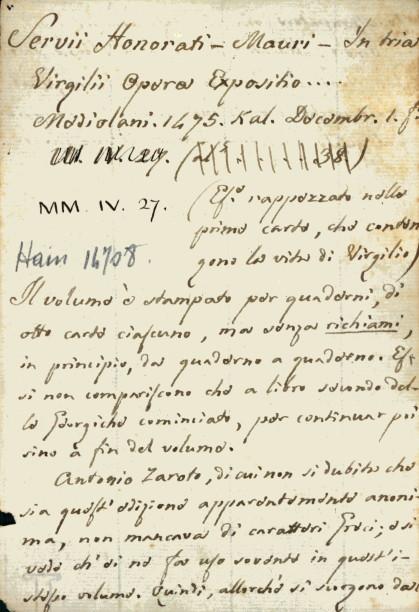 Servii Honorati - Mauri - in tria
Virgilii Opera Expositio....
Mediolani. 1475. Kal. Decembr. 1. fº
IV. 27.
MM. IV. 27. (Esº rappezzato nelle
prime carte, che conten
gono la vita di Virgilio)
Hain 14708.
Il volume è stampato per quaderni, di
otto carte ciascuno, ma senza richiami,
in principio, da quaderno a quaderno. Es
si non compariscono che a libro secondo del-
le Georgiche cominciato, per continuar poi
sino à fin del volume.
Antonio Zaroto, di cui non si dubita che
sia quest' edizione apparentemente anoni
ma, non mancava di caratteri Greci; e si
vede ch' ei ne fa uso sovente in quest' i-
stesso volume. Quindi, allorchè si scorgono da